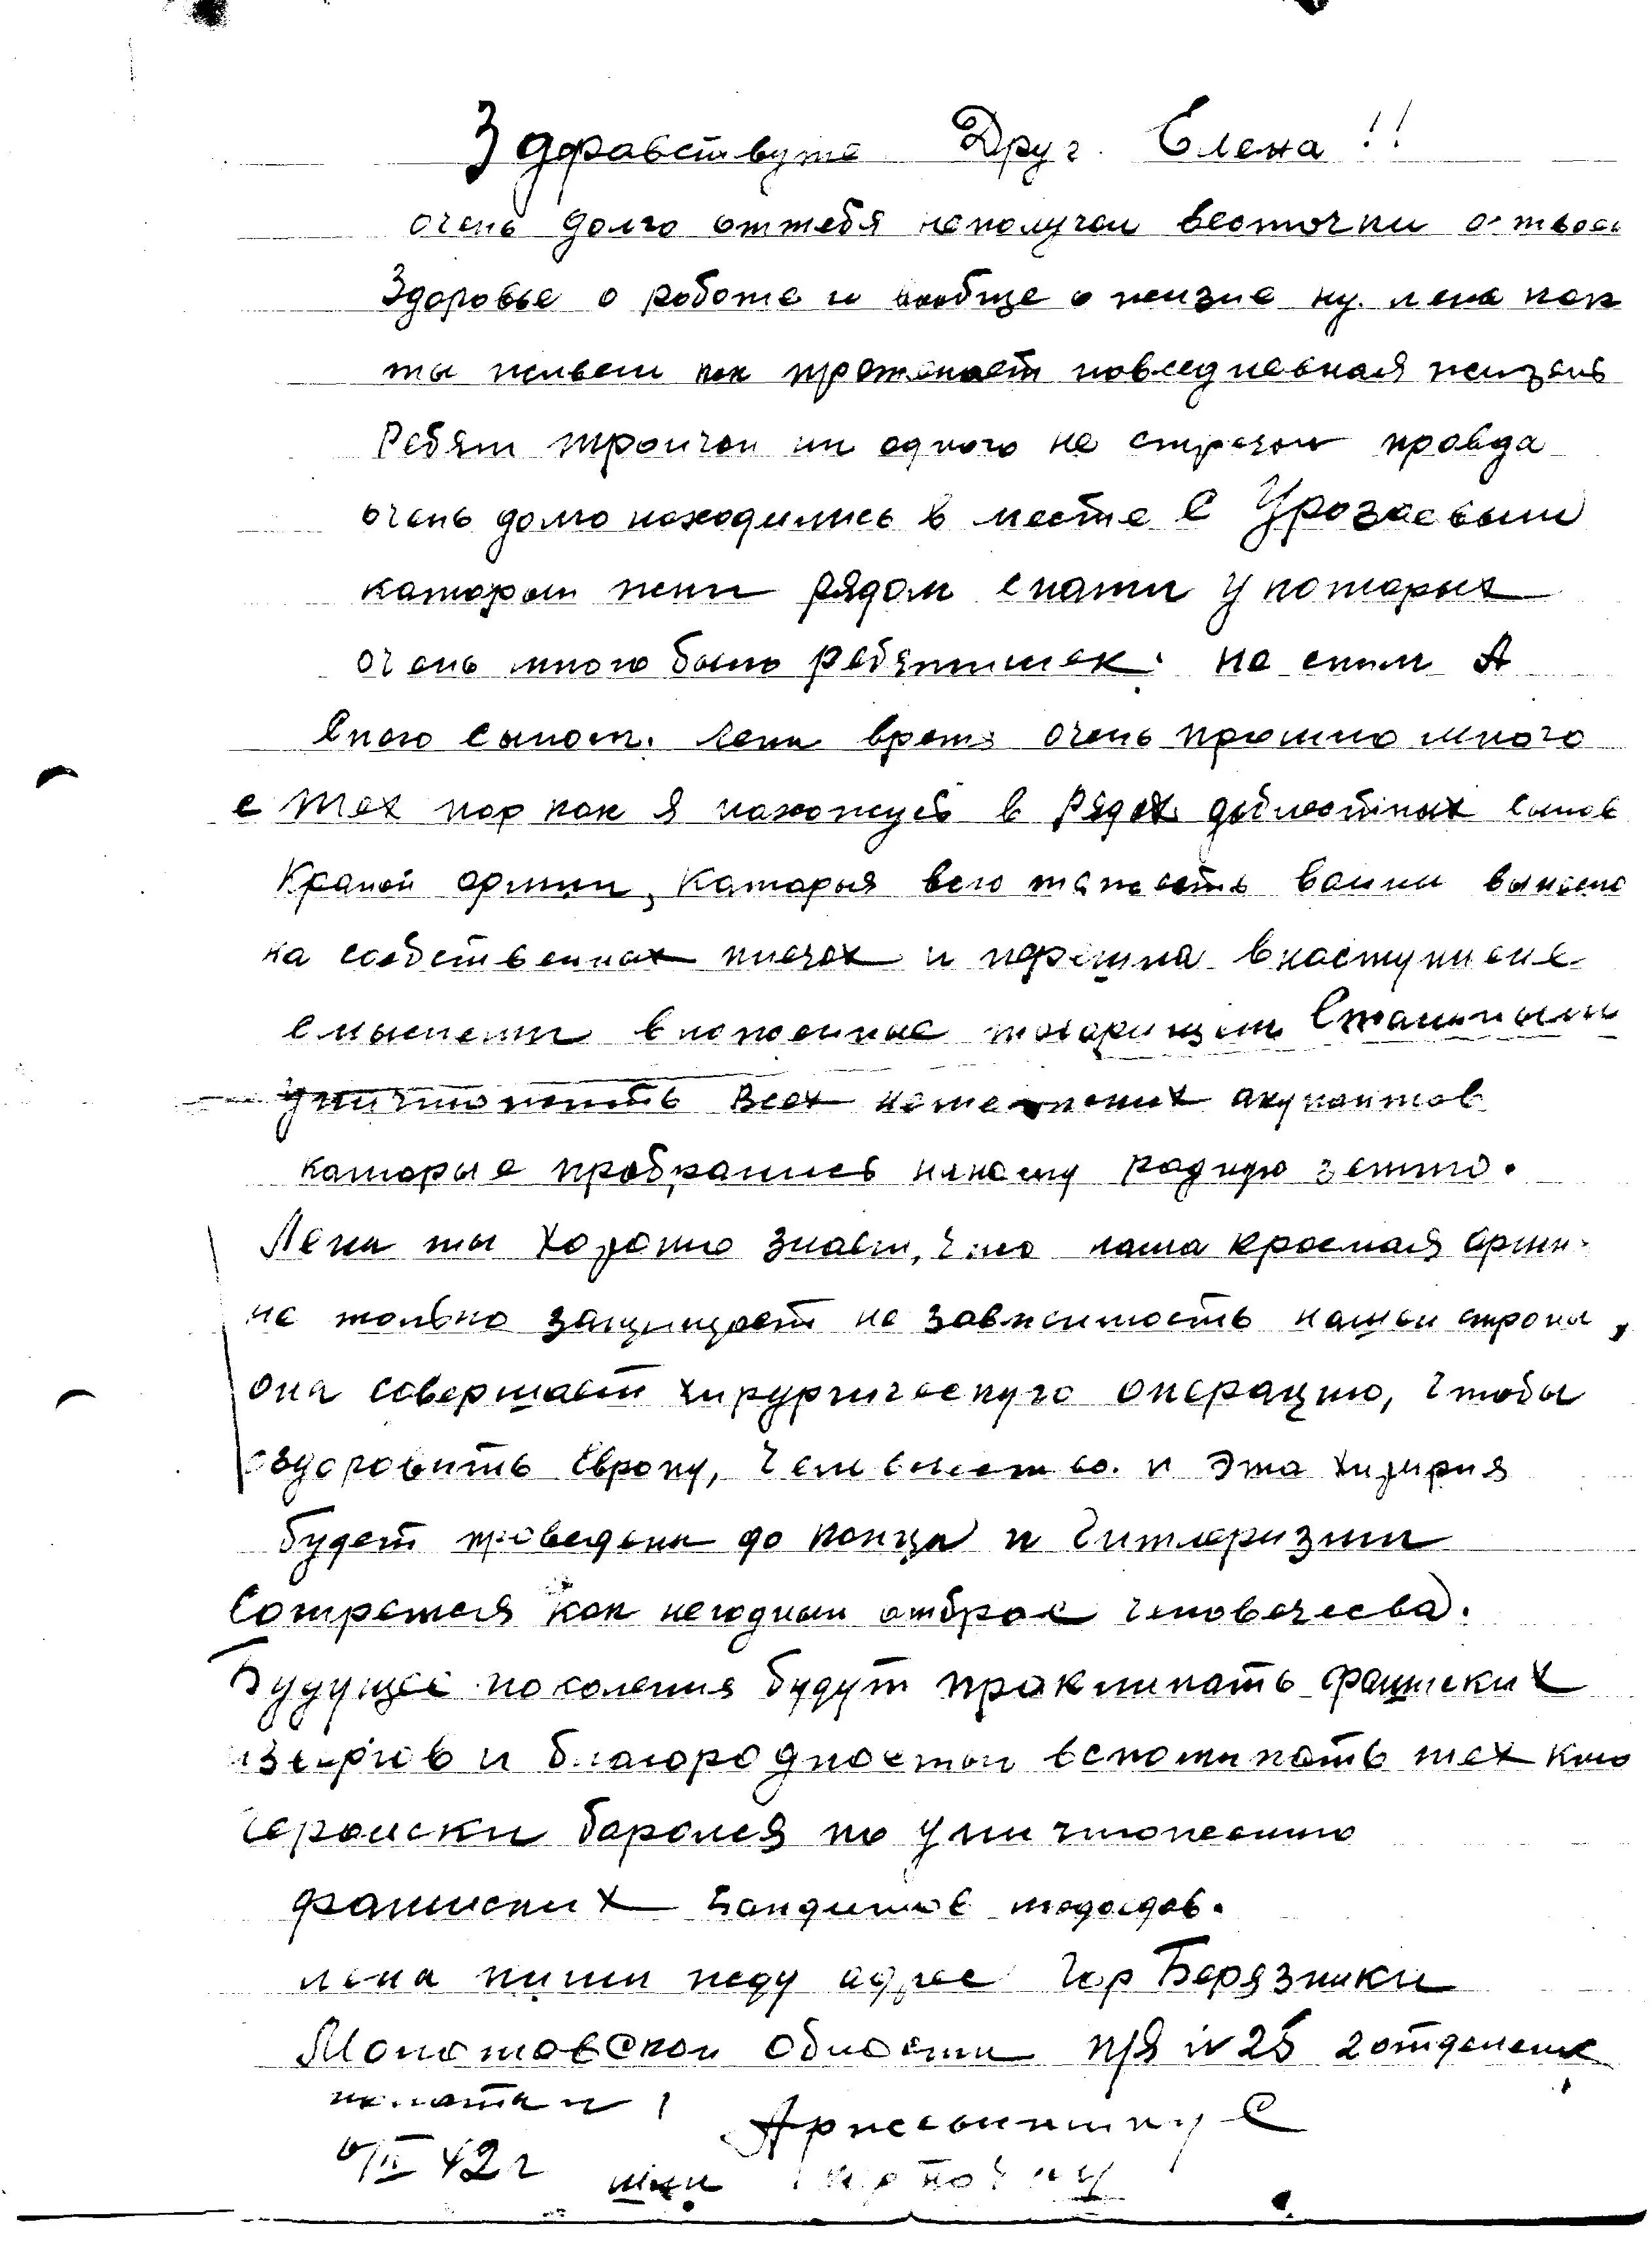 Здравствуте Друг Елена!!
очень долго оттебя неполучал весточки о твоем
Здоровье о работе и вообще о жизне ну. лена как
ты живеш как протекает повседневная жизень
Ребят ни одного не стречал правда
очень долго находились в месте с Урозаевым
каторыи жил рядом с нами у которых
очень много было ребятишек. не с ним А
с его сыном. Лена время очень прошло много
с тех пор как я нахожусь в рядах доблестных сынов
Краной армии, Каторыя всю тяжесть воины вынесла
на собственных плечах и перешла внаступление
с мыслями товарищем Сталиным
уничтожить всех немецких акупантов
каторые пробрались нанашу радную землю.
Лена ты хорошо знаеш, что наша красная армия
не только защищает не зависимость нашеи страны,
она совершает хирургическую операцию, чтобы
оздоровить Европу, человечество. и эта
будет проведена до конца и Гитлеризм
Сотрется как негодныи отброс человечесва.
Будущее поколения будут проклинать фашиских
извергов и благородностью вспоминать тех кто
героиски боролся по уничтожению
фашиских бандитов людоедов.
лена пиши по адрес Гор Берязники
Молотовскои области п/я N 25 2 отделение
палата 1
42 г